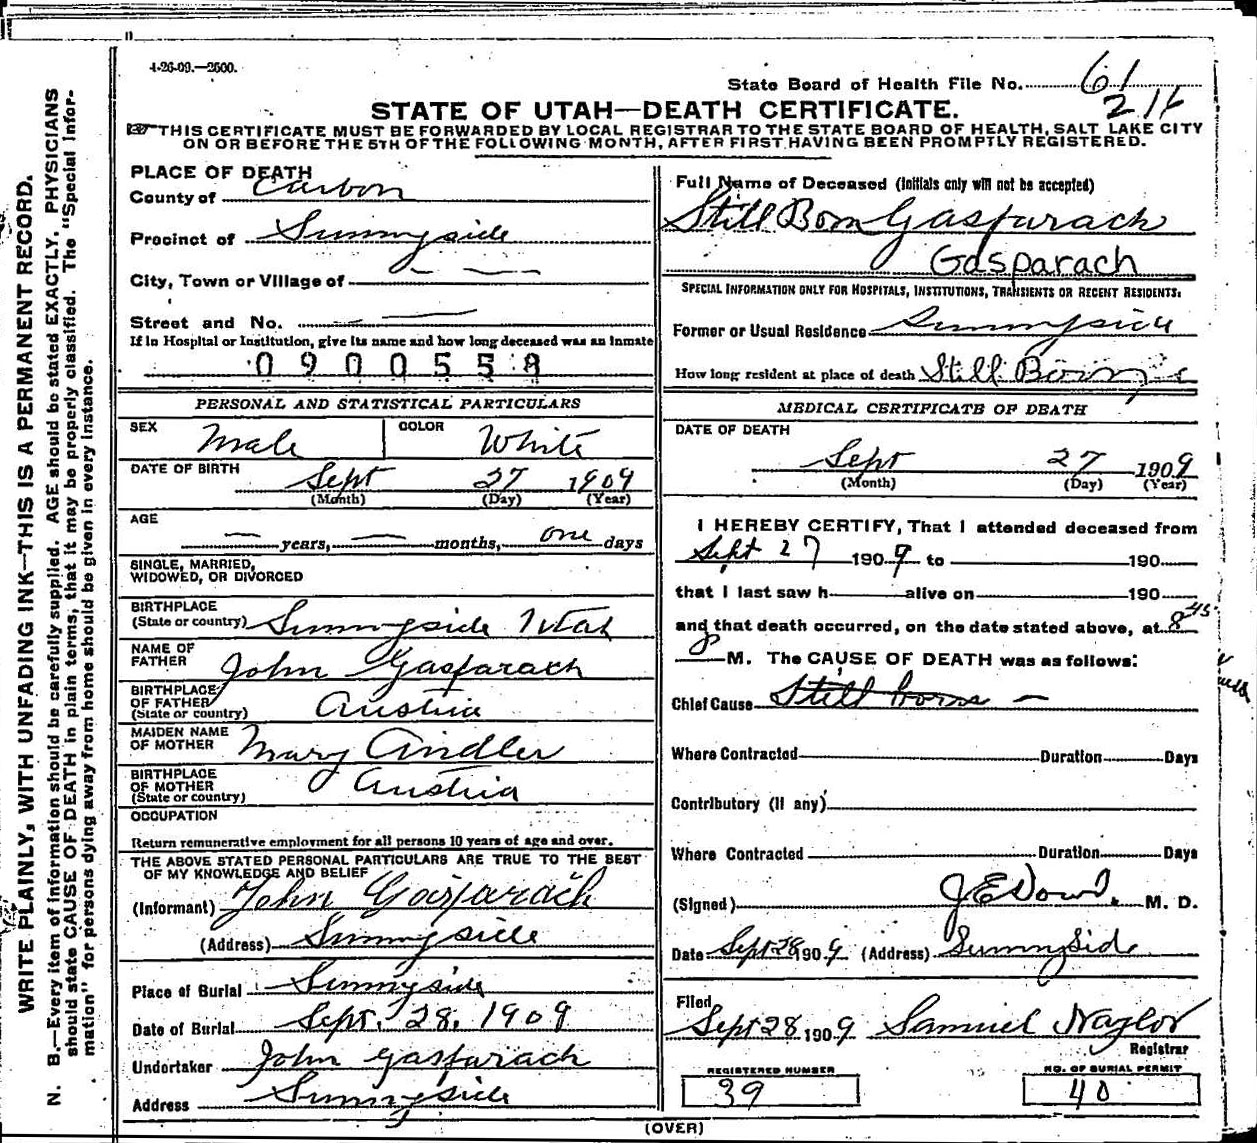 4-26-09.—2500.
State Board of Health File No. 61
STATE OF UTAH—DEATH CERTIFICATE.
THIS CERTIFICATE MUST BE FORWARDED BY LOCAL REGISTRAR TO THE STATE BOARD OF HEALTH, SALT LAKE CITY
ON OR BEFORE THE 5TH OF THE FOLLOWING MONTH, AFTER FIRST HAVING BEEN PROMPTLY REGISTERED.
WRITE PLAINLY, WITH UNFADING INK—THIS IS A PERMANENT RECORD.
N. B.—Every item of information should be carefully supplied. AGE should be stated EXACTLY, PHYSICIANS
should state CAUSE OF DEATH in plain terms, that it may be properly classified. The "Special Infor-
mation" for persons dying away from home should be given in every instance.
PLACE OF DEATH
County of Carbon
Precinct of Sunnyside
City, Town or Village of
Street and No.
If in Hospital or Institution, give its name and how long deceased was an inmate
0900558
PERSONAL AND STATISTICAL PARTICULARS
SEX Male COLOR White
DATE OF BIRTH Sept 27 1909
(Month) (Day) (Year)
AGE
— years, — months, one days
SINGLE, MARRIED,
WIDOWED, OR DIVORCED
BIRTHPLACE
(State or country) Sunnyside Utah
NAME OF
FATHER John Gasparach
BIRTHPLACE
OF FATHER
(State or country) Austria
MAIDEN NAME
OF MOTHER Mary Andler
BIRTHPLACE
OF MOTHER
(State or country) Austria
OCCUPATION
Return remunerative employment for all persons 10 years of age and over.
THE ABOVE STATED PERSONAL PARTICULARS ARE TRUE TO THE BEST
OF MY KNOWLEDGE AND BELIEF
(Informant) John Gasparach
(Address) Sunnyside
Place of Burial Sunnyside
Date of Burial Sept. 28. 1909
Undertaker John Gasparach
Address Sunnyside
Full Name of Deceased (Initials only will not be accepted)
Still Born Gasparach
Gasparach
SPECIAL INFORMATION ONLY FOR HOSPITALS, INSTITUTIONS, TRANSIENTS OR RECENT RESIDENTS.
Former or Usual Residence Sunnyside
How long resident at place of death Still Born
MEDICAL CERTIFICATE OF DEATH
DATE OF DEATH
Sept 27 1909
(Month) (Day) (Year)
I HEREBY CERTIFY, That I attended deceased from
Sept 27 1909 to 190
that I last saw h alive on 190
and that death occurred, on the date stated above, at 8 45
P M. The CAUSE OF DEATH was as follows:
Chief Cause Still born —
Where Contracted Duration Days
Contributory (if any)
Where Contracted Duration Days
(Signed) J E Dowd. M. D.
Date Sept 28 1909 (Address) Sunnyside
Filed
Sept 28 1909 Samuel Naylor
Registrar
REGISTERED NUMBER
39
NO. OF BURIAL PERMIT
40
(OVER)